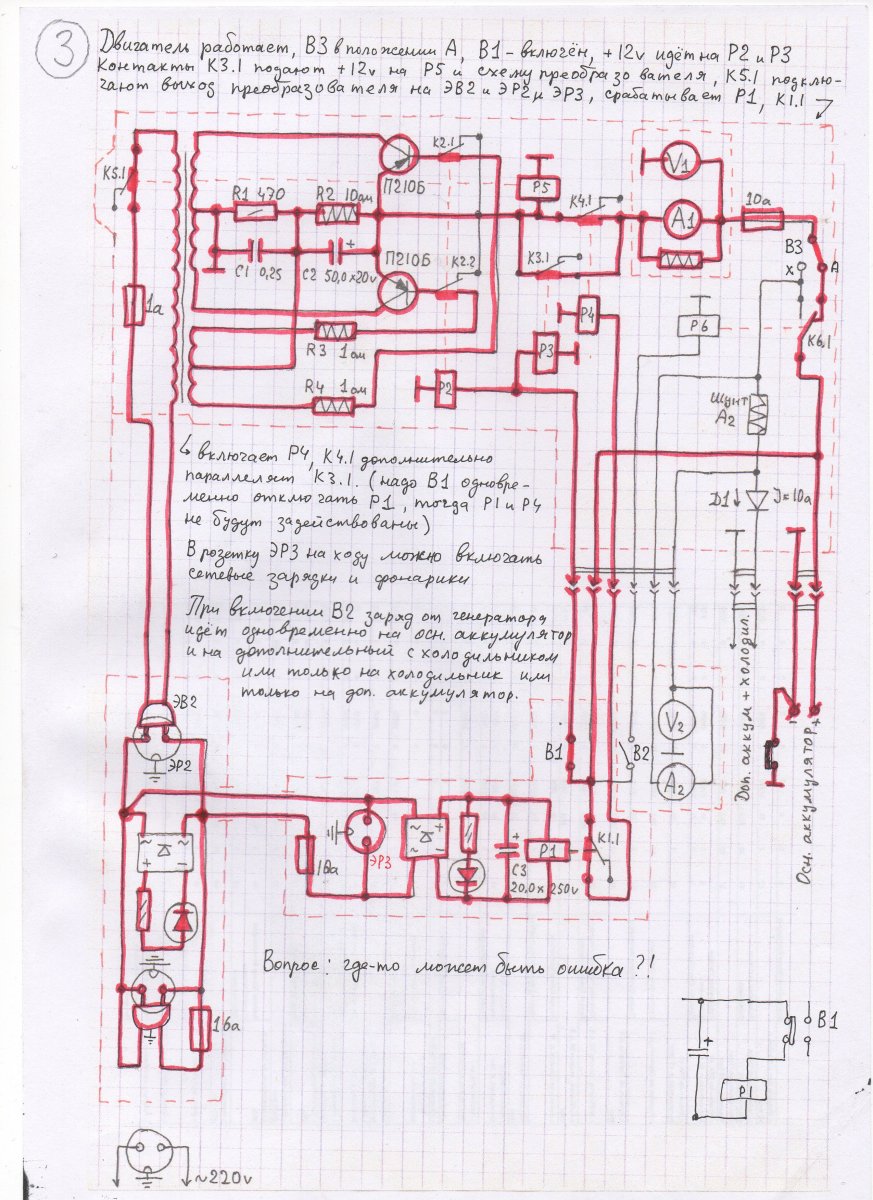 3
Двигатель работает, В3 в положении А, В1 - включён, +12v идёт на Р2 и Р3
Контакты К3.1 подают +12v на Р5 и схему преобразователя, К5.1 подклю-
чают выход преобразователя на ЭВ2 и ЭР2 и ЭР3, срабатывает Р1, К1.1
К5.1
К2.1
П210Б
R1 470
R2 10ом
Р5
К4.1
V1
А1
10а
В3
х
А
С1 0,25
С2 50,0х20v
+
П210Б
К2.2
К3.1
1а
R3 1ом
Р4
Р6
К6.1
Р3
R4 1ом
Р2
шунт
А2
включает Р4, К4.1 дополнительно
параллелят К3.1. (надо В1 одновре-
менно отключать Р1, тогда Р1 и Р4
не будут задействованы)
Д1
J=10а
В розетку ЭР3 на ходу можно включать
сетевые зарядки и фонарики
При включении В2 заряд от генератора
идёт одновременно на осн. аккумулятор
и на дополнительный с холодильником
или только на холодильник или
только на доп. аккумулятор.
Доп. аккум + холодил.
Осн. аккумулятор
- +
ЭВ2
ЭР2
В1
В2
V2
А2
~ ~
+ -
16а
ЭР3
~ +
~ -
+
С3
20,0х250v
Р1
К1.1
Вопрос: где-то может быть ошибка?!
16а
+
В1
Р1
~220v